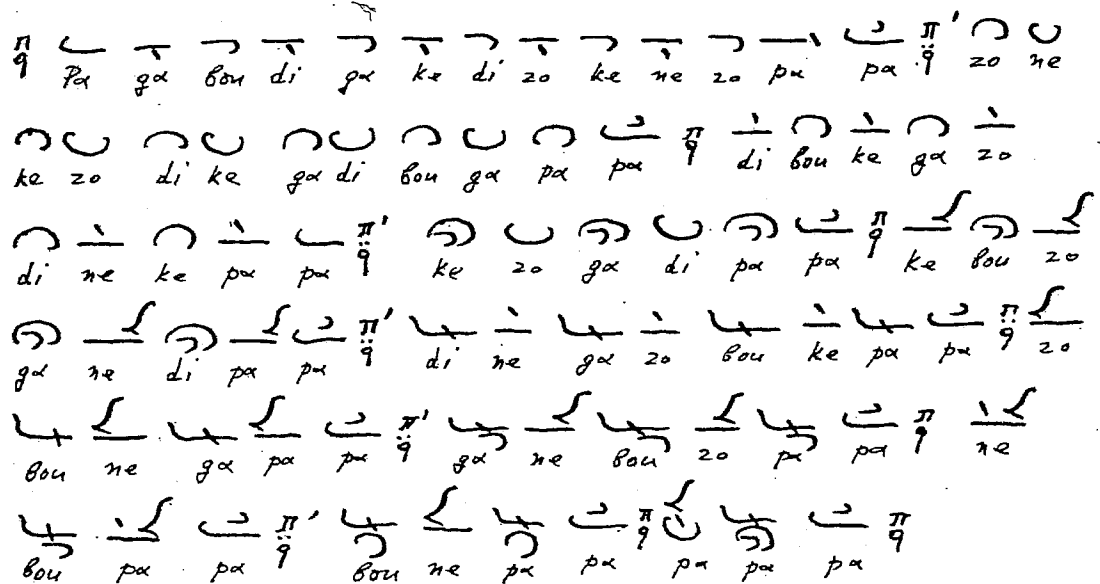 π q pα gα βou di gα ke di zo ke ne zo pα pα π' q zo ne
ke zo di ke gα di βou gα pα pα π q di βou ke gα zo
di ne ke pα pα π' q ke zo gα di pα pα π q ke βou zo
gα ne di pα pα π' q di ne gα zo βou ke pα pα π q zo
βou ne gα pα pα π' q gα ne βou zo pα pα π q ne
βou pα pα π' q βou ne pα pα π q pα pα pα π q